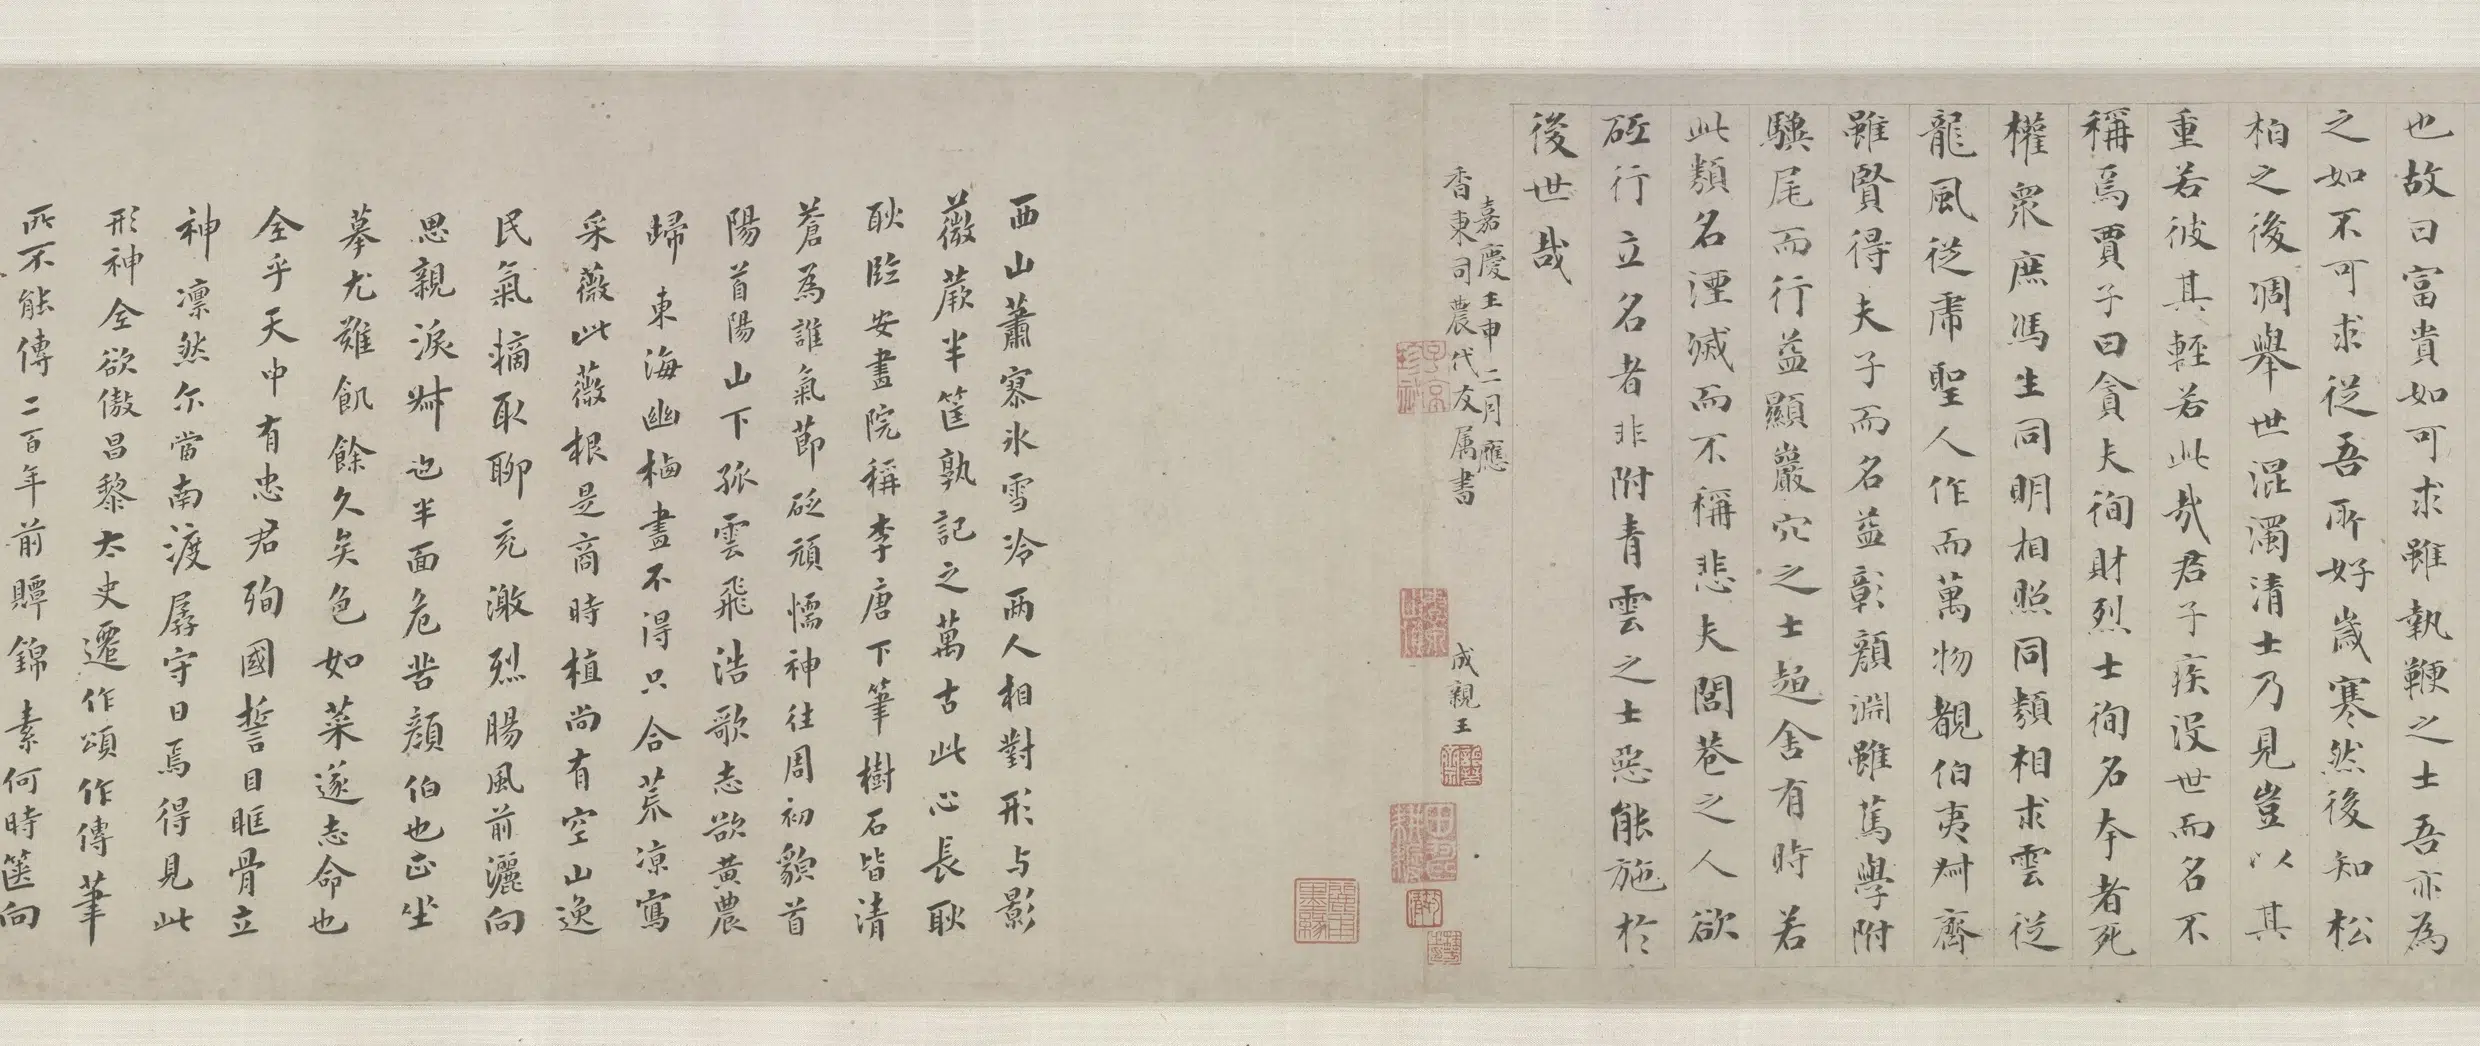 也故曰富貴如可求雖執鞭之士吾亦為
之如不可求從吾所好歲寒然後知松
柏之後凋舉世混濁清士乃見豈以其
重若彼其輕若此哉君子疾沒世而名不
稱焉賈子曰貪夫徇財烈士徇名夸者死
權衆庶馮生同明相照同類相求雲從
龍風從虎聖人作而萬物覩伯夷叔齊
雖賢得夫子而名益彰顏淵雖篤學附
驥尾而行益顯巖穴之士趨舍有時若
此類名湮滅而不稱悲夫閭巷之人欲
砥行立名者非附青雲之士惡能施於
後世哉
嘉慶壬申二月應
香東司農代友属書
成親王
西山蕭寥氷雪冷兩人相對形与影
薇蕨半筐孰記之萬古此心長耿
耿臨安畫院稱李唐下筆樹石皆清
蒼為誰氣節砭頑懦神往周初貌首
陽首陽山下孤雲飛浩歌志欲黃農
歸東海幽栖畫不得只合荒凉寫
采薇此薇根是商時植尚有空山逸
民氣摘取聊充澈烈腸風前灑向
思親淚叔也半面危苦顏伯也正坐
摹尤難飢餘久矣色如菜遂志命也
全乎天中有忠君殉國誓目眶骨立
神凛然尔當南渡孱守日焉得見此
形神全欲傲昌黎太史遷作頌作傳筆
所不能傳二百年前贉錦素何時篋向